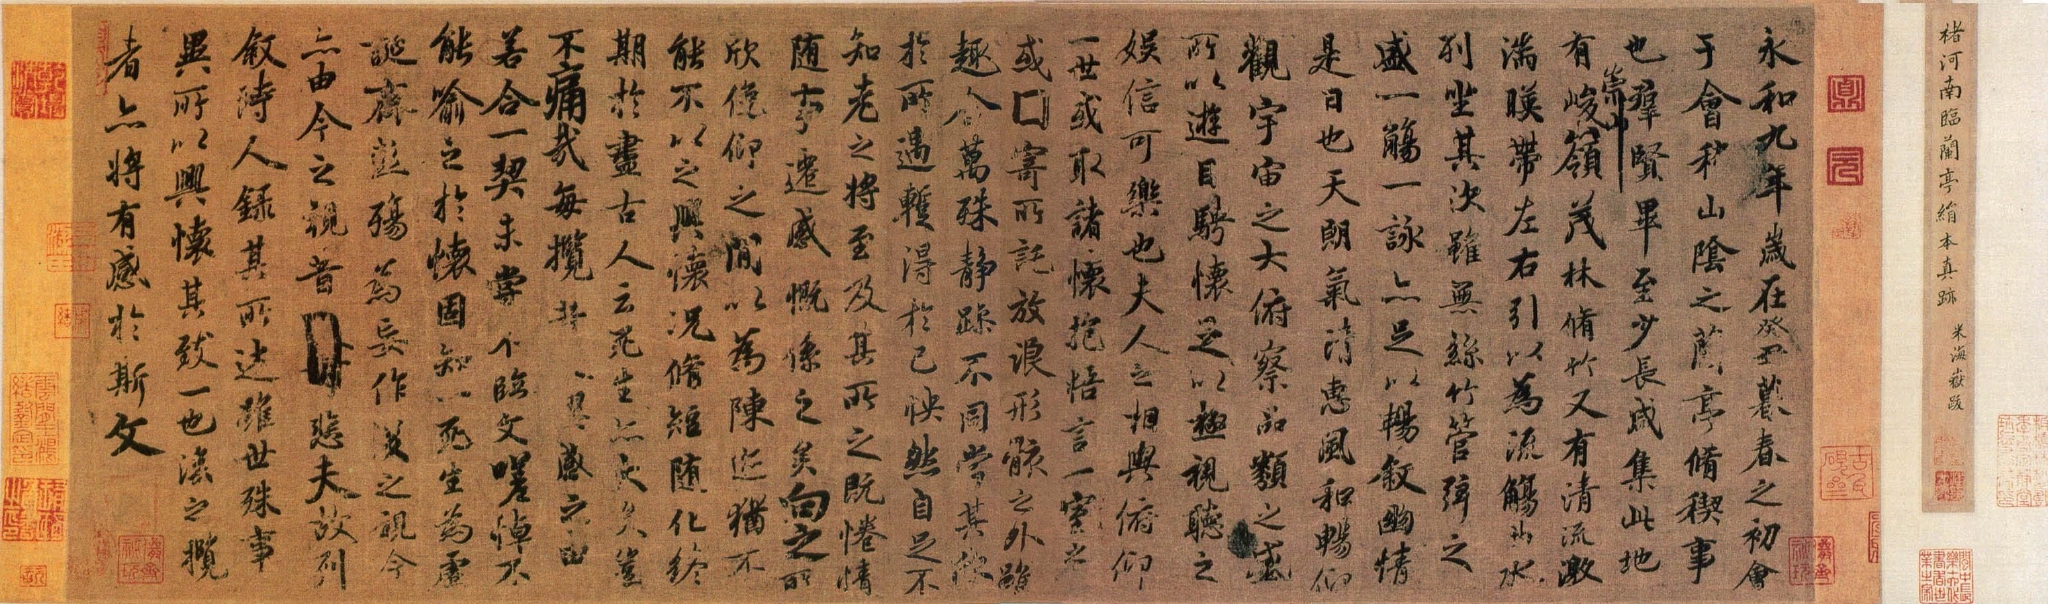 褚河南臨蘭亭絹本真跡 米海嶽跋
永和九年歲在癸丑暮春之初會
于會稽山陰之蘭亭脩稧事
也羣賢畢至少長咸集此地
有崇山峻領茂林脩竹又有清流激
湍暎帶左右引以為流觴曲水
列坐其次雖無絲竹管弦之
盛一觴一詠亦足以暢敘幽情
是日也天朗氣清惠風和暢仰
觀宇宙之大俯察品類之盛
所以遊目騁懷足以極視聽之
娛信可樂也夫人之相與俯仰
一世或取諸懷抱悟言一室之
或寄所託放浪形骸之外雖
趣舍萬殊靜躁不同當其欣
於所遇暫得於己怏然自足不
知老之將至及其所之既惓情
隨事遷感慨係之矣向之所
欣俛仰之間以為陳迹猶不
能不以之興懷況脩短隨化終
期於盡古人云死生亦大矣豈
不痛哉每攬昔人興感之由
若合一契未嘗不臨文嗟悼不
能喻之於懷固知一死生為虛
誕齊彭殤為妄作後之視今
亦由今之視昔悲夫故列
敘時人錄其所述雖世殊事
異所以興懷其致一也後之攬
者亦將有感於斯文